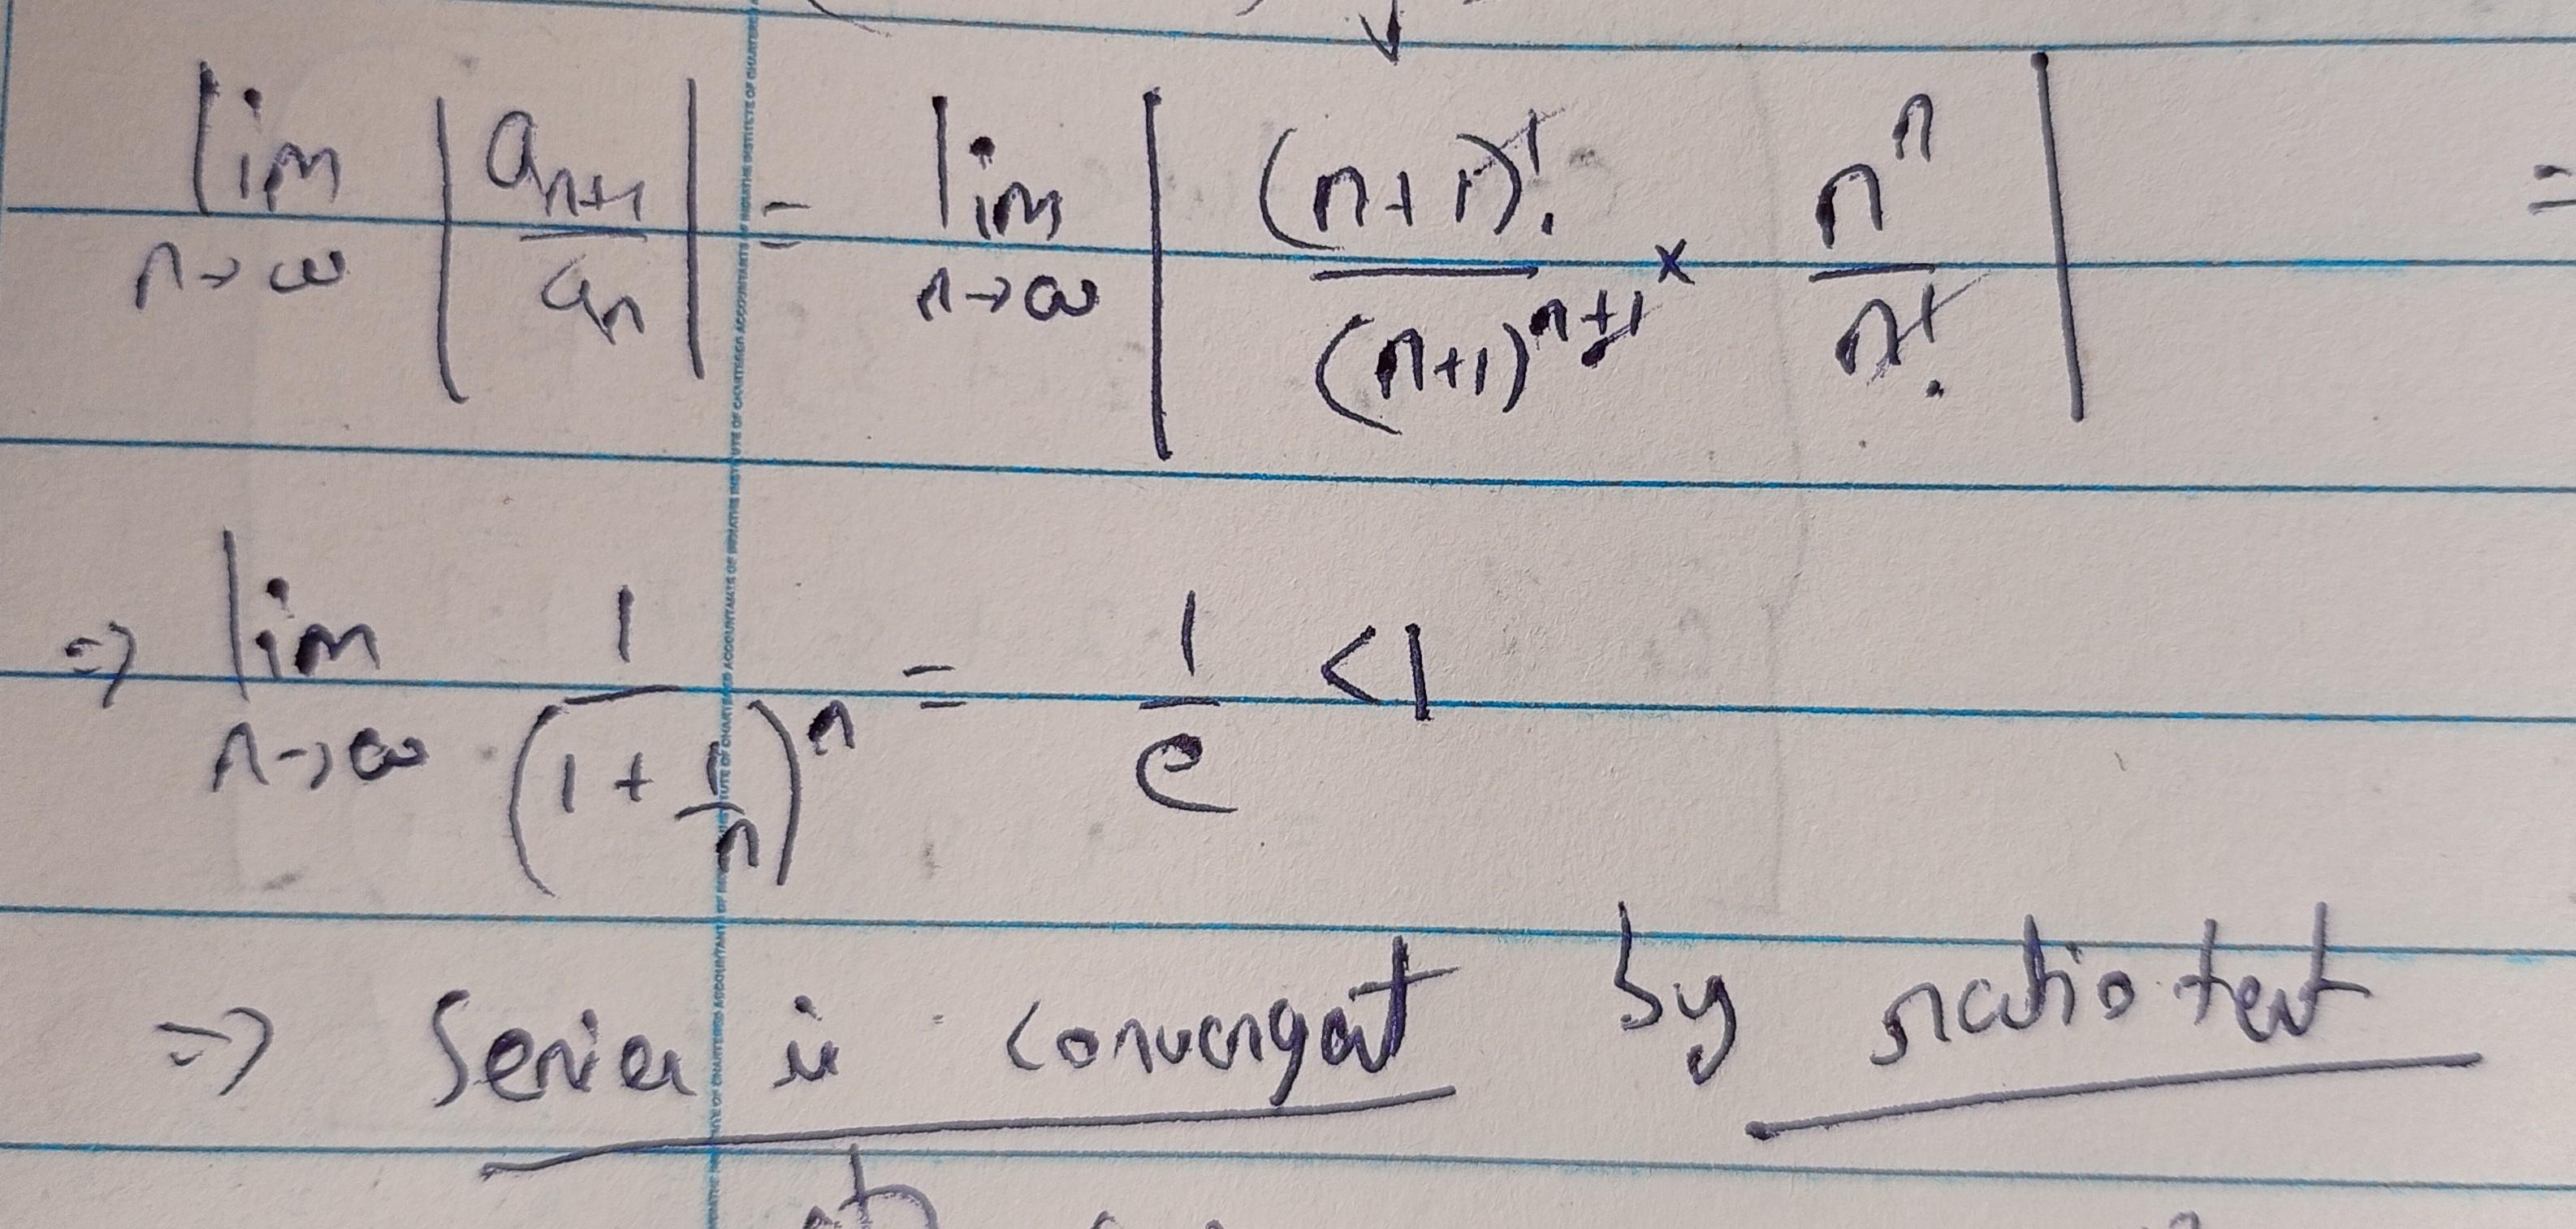 lim n→∞ | a_{n+1} / a_n | = lim n→∞ | (n+1)! / (n+1)^{n+1} × n^n / n! | =
⇒ lim n→∞ 1 / (1 + 1/n)^n = 1/e < 1
⇒ Series is convergent by ratio test